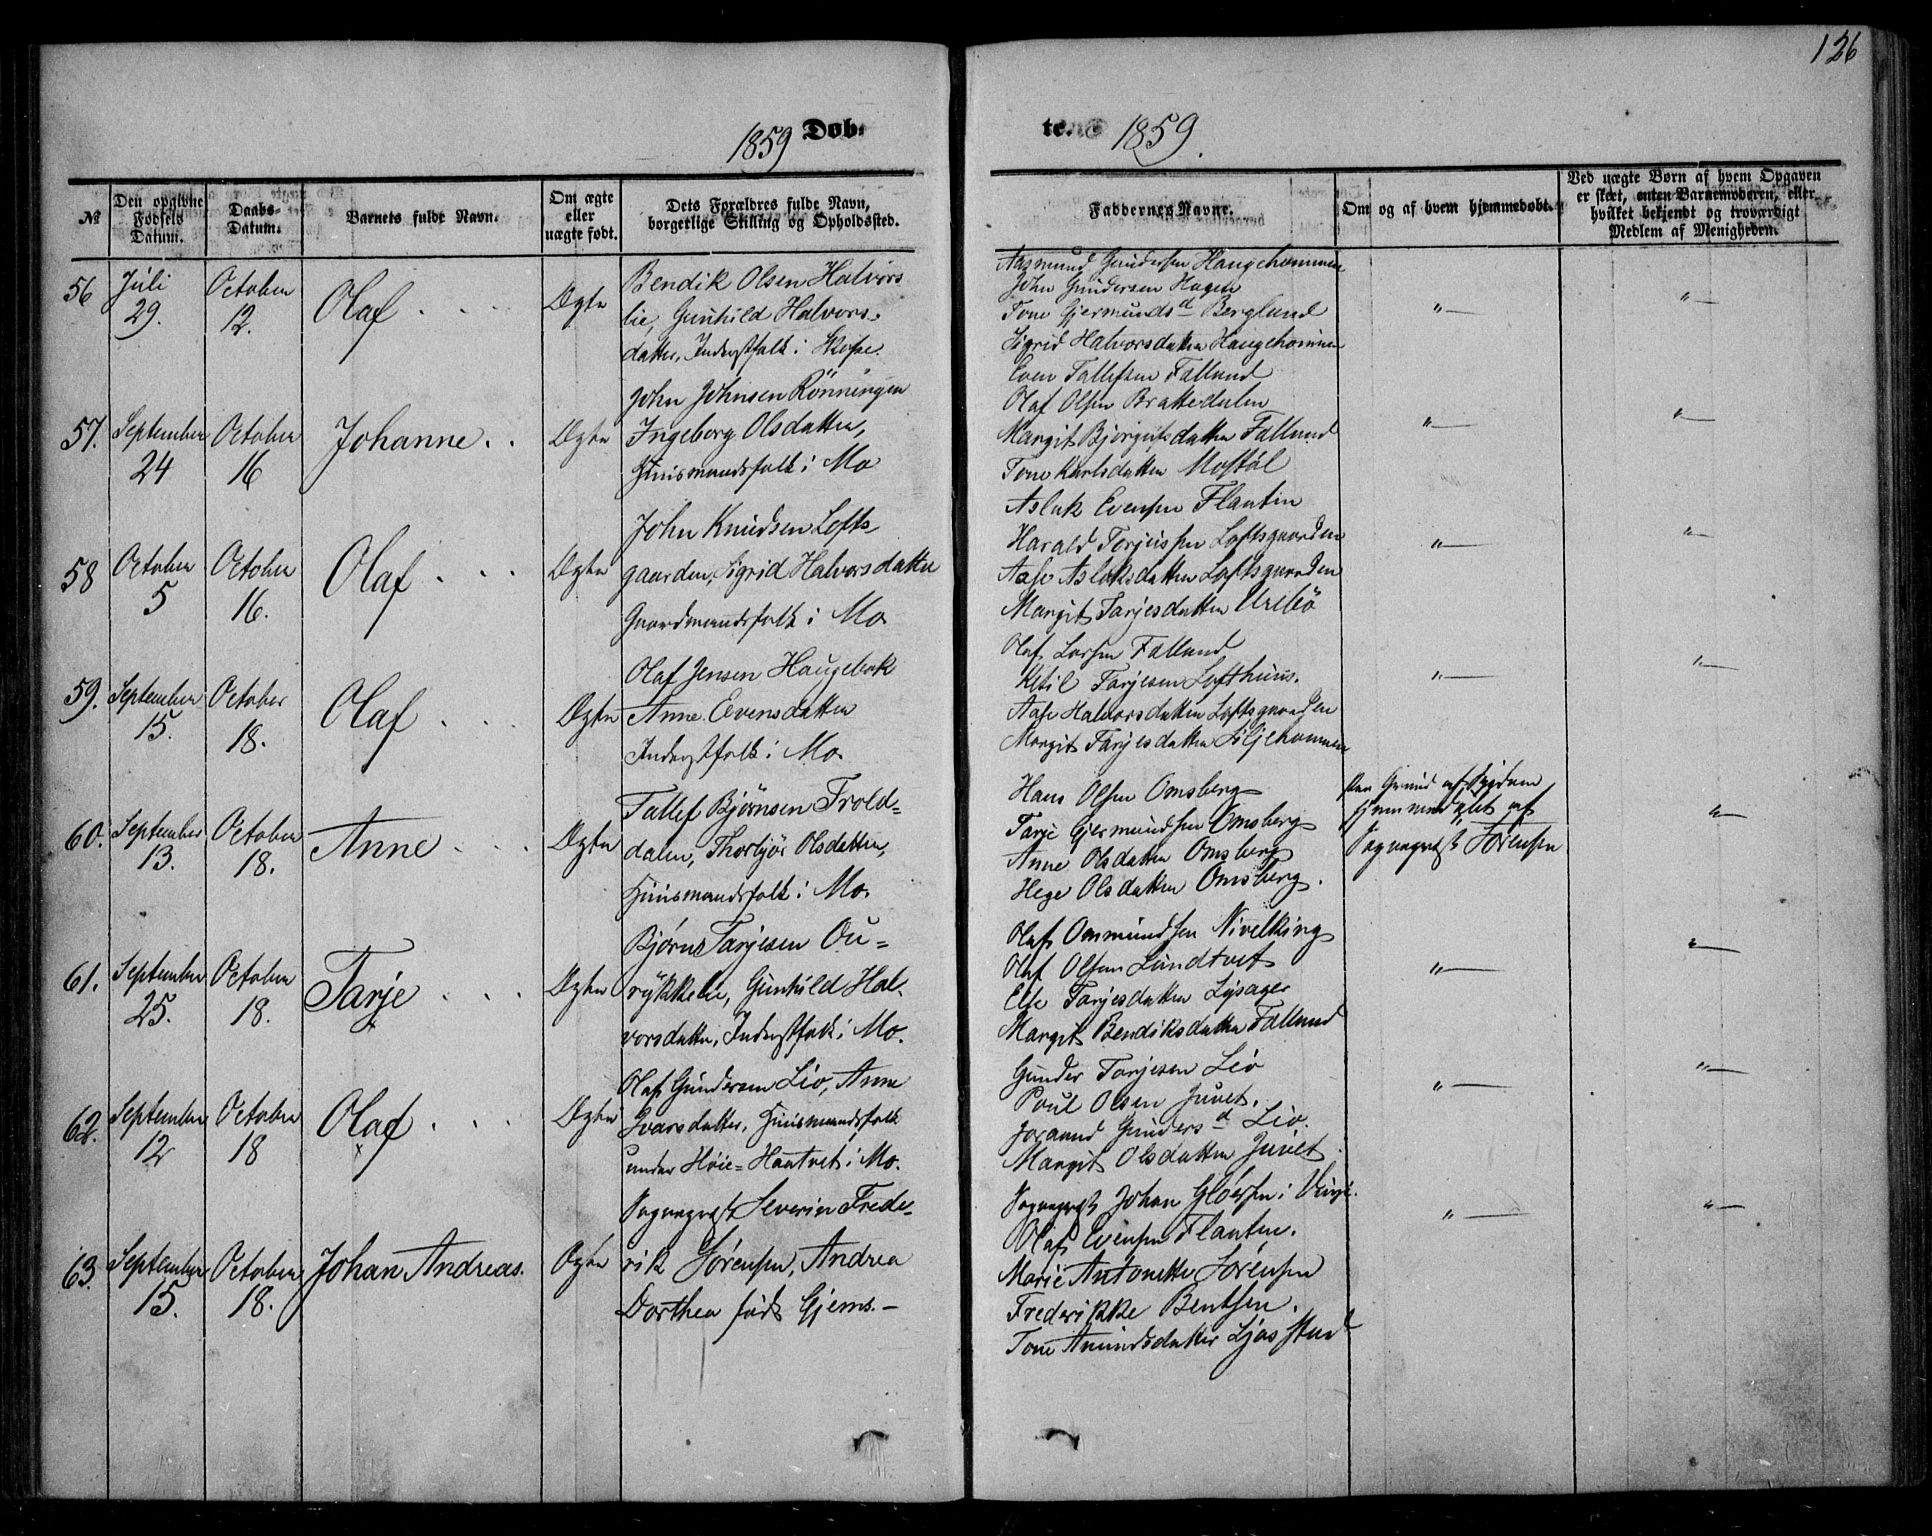 126
1859 Døb-
te. 1859.
№
Den opgivne Fødsels Datum.
Daabs-Datum.
Barnets fulde Navn.
Om ægte eller uægte født.
Dets Forældres fulde Navn, borgerlige Stilling og Opholdssted.
Faddernes Navne.
Om og af hvem hjemmedøbt.
Ved uægte Børn af hvem Opgaven er skeet, enten Barnemoderen, eller hvilket bekjendt og troværdigt Medlem af Menigheden.
56
Juli 29.
October 12.
Olaf
Ægte
Bendik Olsen Halvors
lie, Gunhild Halvors-
datter, Inderstfolk i Skofse.
Aasmund Gundersen Haugehommen
John Gundersen Hagen
Tone Gjermundsd Berglund
Sigrid Halvorsdatter Haugehommen
"—
"—
57.
September 24
October 16
Johanne.
Ægte
John Johnsen Rönningen
Ingeborg Olsdatter,
Huusmandsfolk i Mo
Even Tallefsen Falland
Olaf Olsen Brattedalen
Margit Bjørgufsdatter Falland
Tone Karlsdatter Mostøl
"—
"—
58
October 5
October 16.
Olaf
Ægte
John Knudsen Lofts-
gaarden, Sigrid Halvorsdatter
Gaardmandsfolk i Mo
Aslak Evensen Flantin
Harald Torjussen Loftsgaarden
Aase Aslaksdatter Loftsgaarden
Margit Tarjesdatter Urebö
"—
"—
59.
September 15.
October 18.
Olaf
Ægte
Olaf Jensen Haugebak
Anne Evensdatter
Inderstfolk i Mo.
Olaf Larsen Falland
Ketil Tarjesen Lofthuus.
Aase Halvorsdatter Loftsgaarden
Margit Tarjesdatter Liljehommen
"—
"—
60.
September 13.
October 18.
Anne
Ægte
Tallef Bjørnsen Trold-
dalen, Thorbjør Olsdatter,
Huusmandsfolk i Mo.
Hans Olsen Omsberg
Tarje Gjermundsen Omsberg
Anne Olsdatter Omsberg
Hege Olsdatter Omsberg.
Paa Grund af Sygdom
hjemmedøbt af
Sognepræst Sørensen
"—
61.
September 25.
October 18.
Tarje
Ægte
Bjørn Tarjesen Ou-
rykkelie, Gunhild Hal-
vorsdatter, Inderstfolk i Mo.
Olaf Ommundsen Nivelking
Olaf Olsen Lundtvet
Else Tarjesdatter Lysager
Margit Bendiksdatter Falland
"—
"—
62.
September 12
October 18
Olaf
Ægte
Olaf Gundersen Lio, Anne
Ivarsdatter, Huusmandsfolk
under Høie-Haatvet i Mo.
Gunder Tarjesen Lio
Poul Olsen Juvet.
Joraand Gundersd Lio.
Margit Olsdatter Juvet.
"—
"—
63.
September 15.
October 18.
Johan Andreas.
Ægte
Sognepræst Severin Frede-
rik Sørensen, Andrea
Dorthea født Gjems.-
Sognepræst Johan Gloersen i Vinje.
Olaf Evensen Flanten.
Marie Antonette Sørensen
Frederikke Bentsen.
Tone Amundsdatter Ljosstad
"—
"—